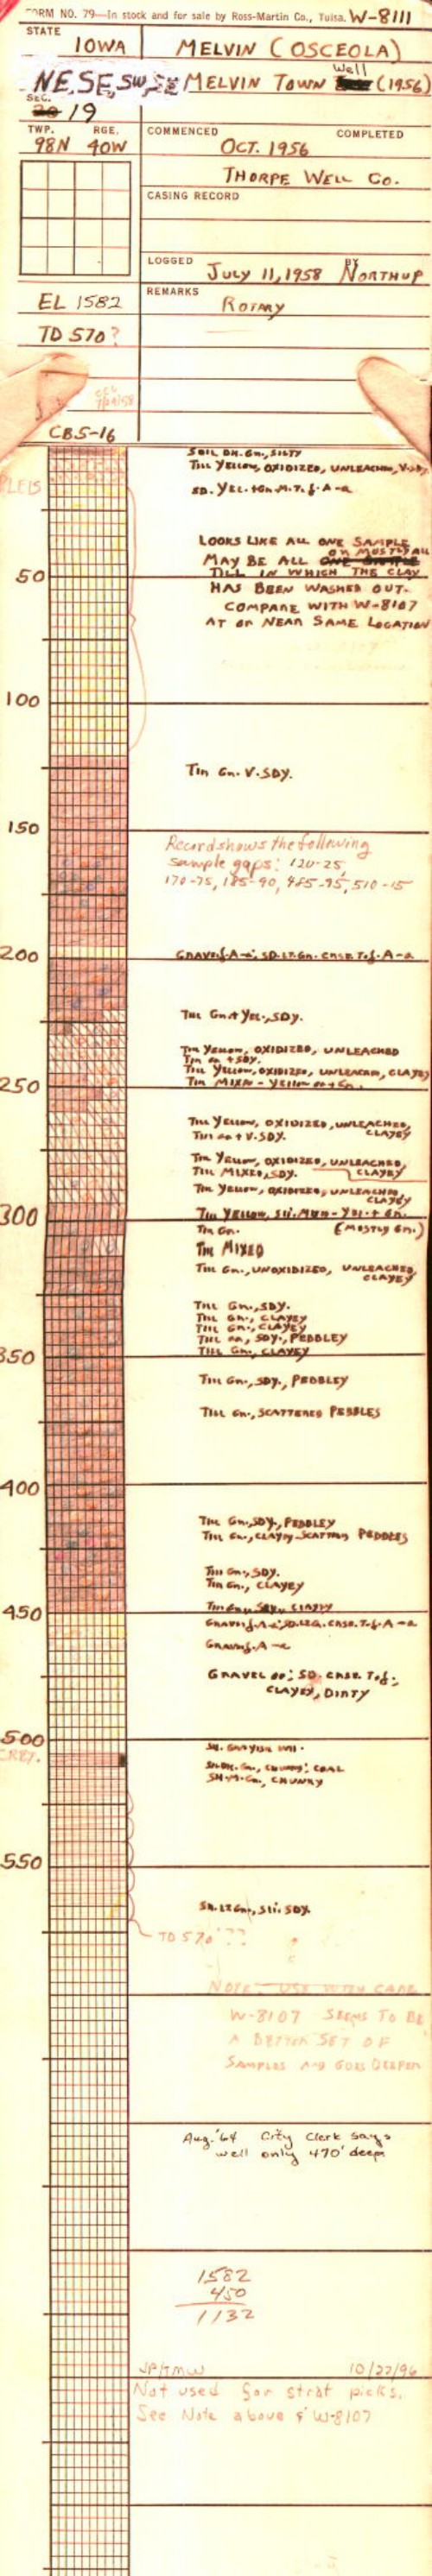 FORM NO. 79—In stock and for sale by Ross-Martin Co., Tulsa. W-8111
STATE
IOWA
MELVIN (OSCEOLA)
NE, SE, SW, SE
MELVIN TOWN Well (1956)
SEC.
20 19
TWP. RGE.
98N 40W
COMMENCED COMPLETED
OCT. 1956
THORPE WELL CO.
CASING RECORD
LOGGED BY
JULY 11, 1958 NORTHUP
EL 1582
REMARKS
ROTARY
TD 570?
CBS-16
SOIL DK. GN., SILTY
PLEIS
TILL YELLOW, OXIDIZED, UNLEACHED, V. SDY.
SD. YEL. + GN. M. T. f. A-a
LOOKS LIKE ALL ONE SAMPLE
OR MOSTLY ALL
MAY BE ALL ONE SAMPLE
50
TILL IN WHICH THE CLAY
HAS BEEN WASHED OUT.
COMPARE WITH W-8107
AT OR NEAR SAME LOCATION
100
TILL GN. V. SDY.
150
Record shows the following
sample gaps: 120-25,
170-75, 185-90, 485-95, 510-15
200
GRAVEL f. A-a; SD. LT. GN. CRSE. T. f. A-a
TILL GN. + YEL., SDY.
TILL YELLOW, OXIDIZED, UNLEACHED
TILL GN. + SDY.
TILL YELLOW, OXIDIZED, UNLEACHED, CLAYEY
250
TILL MIXED - YELLOW + GN.
TILL YELLOW, OXIDIZED, UNLEACHED,
CLAYEY
TILL GN. + V. SDY.
TILL YELLOW, OXIDIZED, UNLEACHED,
CLAYEY
TILL MIXED, SDY.
TILL YELLOW, OXIDIZED, UNLEACHED,
CLAYEY
300
TILL YELLOW, SLI. MIXED - YEL. + GN.
TILL GN. (MOSTLY GN.)
TILL MIXED
TILL GN., UNOXIDIZED, UNLEACHED,
CLAYEY
TILL GN., SDY.
TILL GN., CLAYEY
TILL GN., CLAYEY
TILL GN., SDY., PEBBLEY
350
TILL GN., CLAYEY
TILL GN., SDY., PEBBLEY
TILL GN., SCATTERED PEBBLES
400
TILL GN., SDY., PEBBLEY
TILL GN., CLAYEY SCATTERED PEBBLES
TILL GN., SDY.
TILL GN., CLAYEY
450
TILL GN., SDY., CLAYEY
GRAVEL f. A-a; SD. LT. G. CRSE. T. f. A-a
GRAVEL f. A-a
GRAVEL; SD. CRSE. T. f.;
CLAYEY, DIRTY
500
CRET.
SH. GRAYISH WH.
SH. DK. GN., CHUNKY; COAL
SH. M. GN., CHUNKY
550
SH. LT. GN., SLI. SDY.
TD 570'??
NOTE: USE WITH CARE
W-8107 SEEMS TO BE
A BETTER SET OF
SAMPLES AND GOES DEEPER
Aug. '64 City Clerk says
well only 470' deep
1582
450
1132
JP/TMW 10/22/96
Not used for strat picks.
See Note above & W-8107